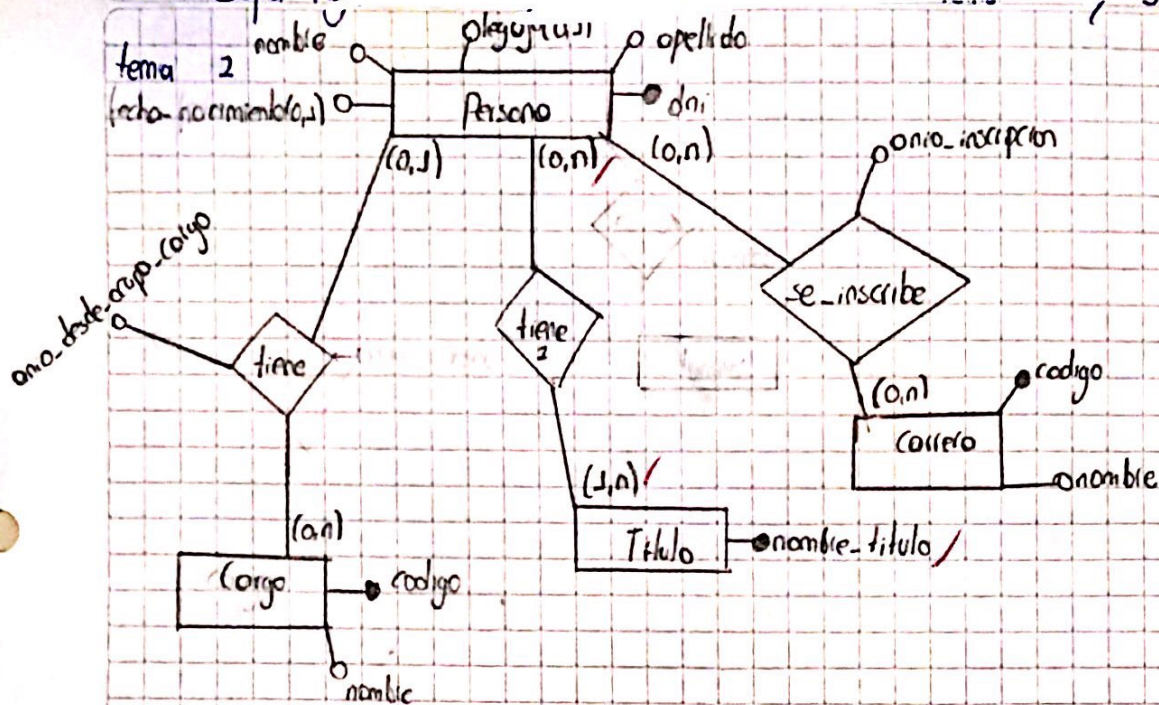 nombre
apellido
tema 2
fecha-nacimiento(0,1)
Persona
dni
(0,1)
(0,n)
(0,n)
anio_inscripcion
anio_desde_ocupo_cargo
tiene
tiene
2
se_inscribe
(0,n)
codigo
Carrera
nombre
(1,n)
(0,n)
Titulo
nombre_titulo
Cargo
codigo
nombre